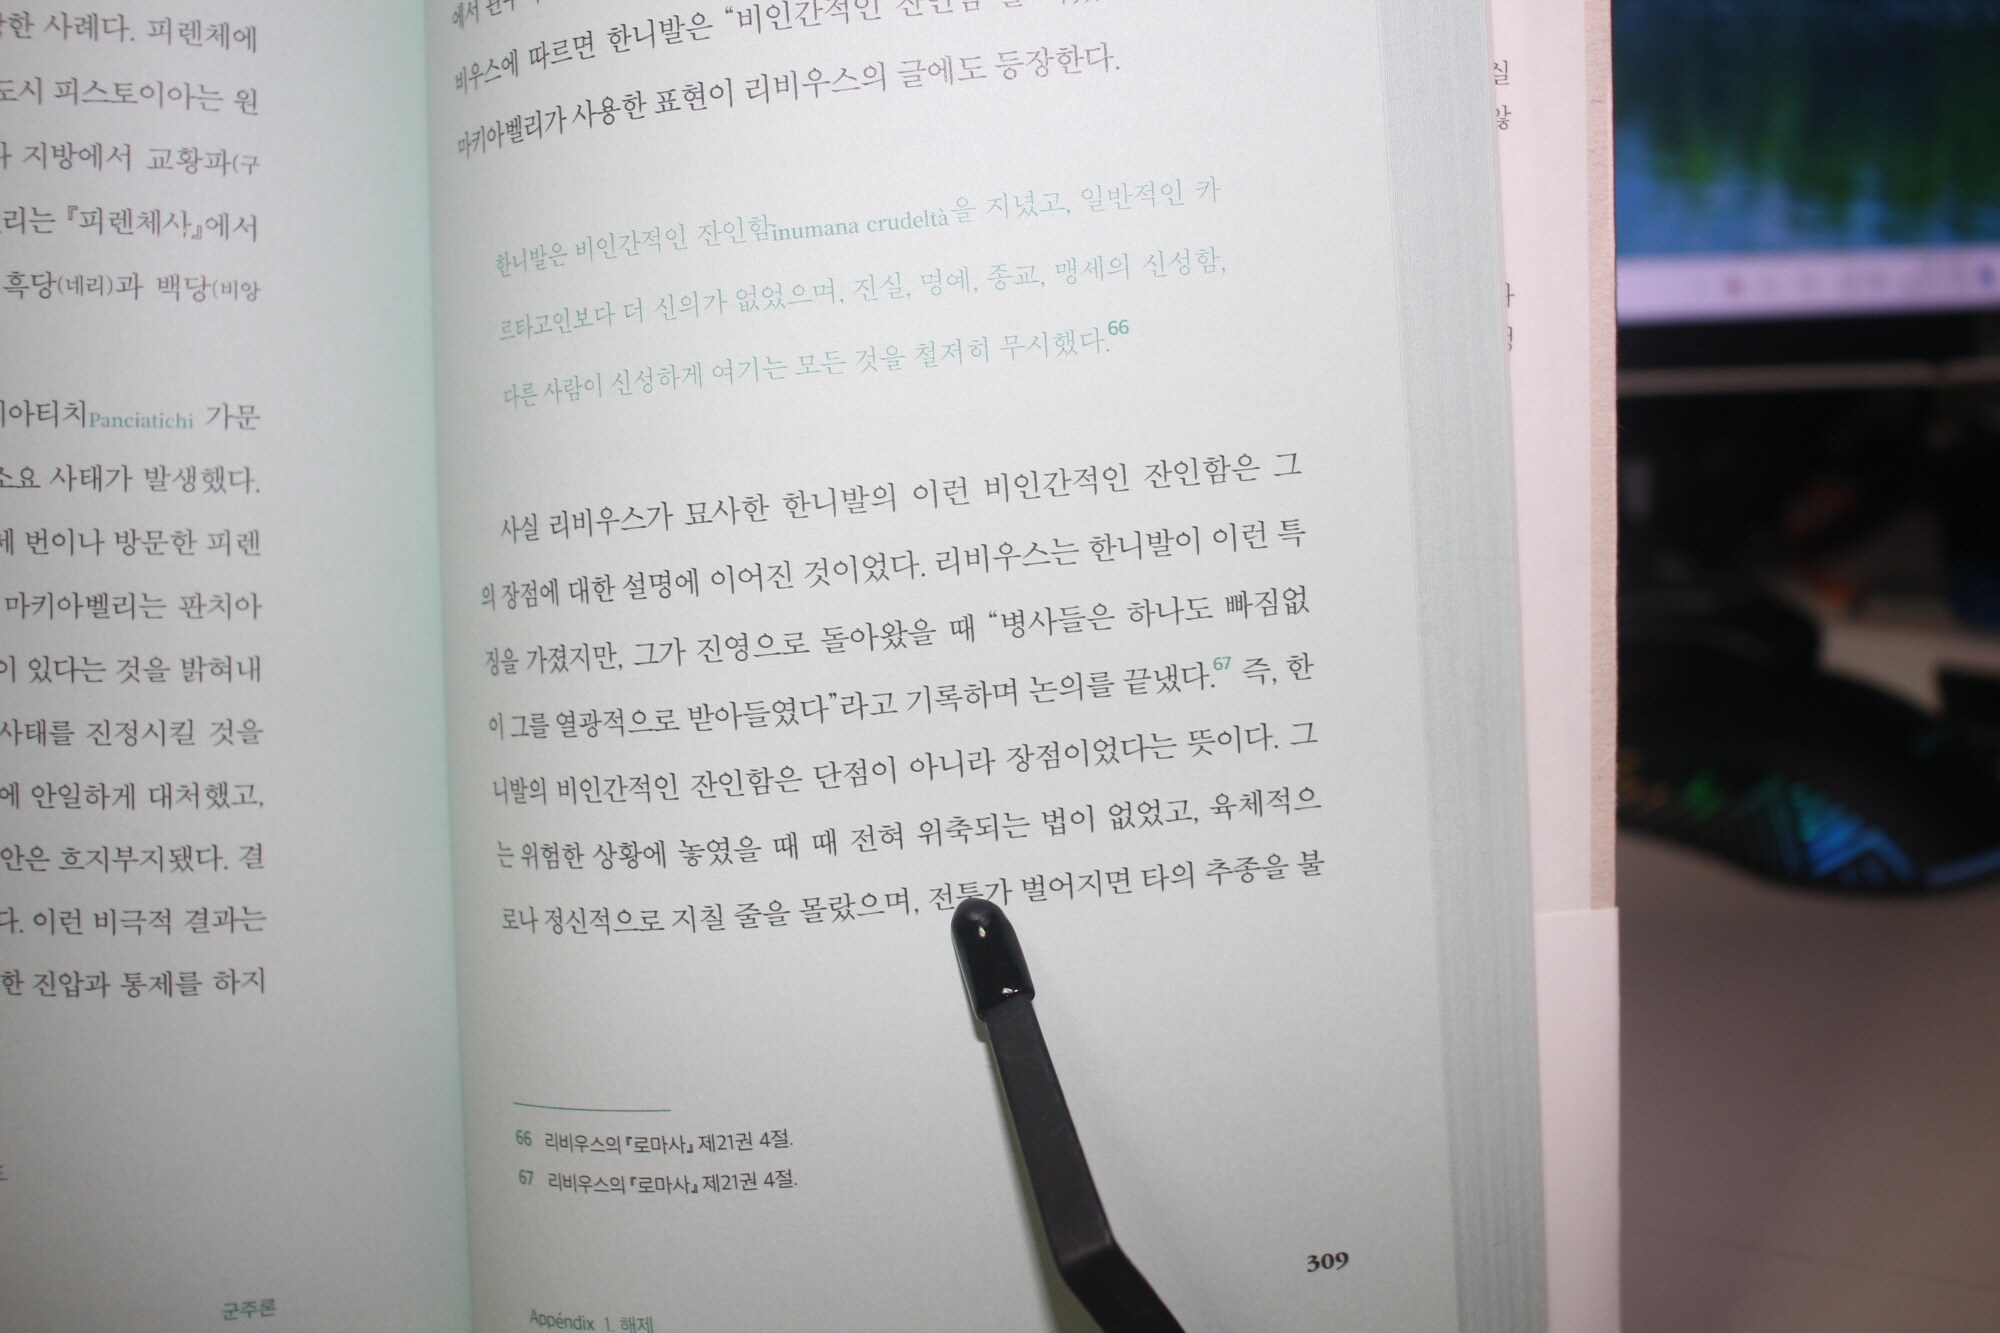 한 사례다. 피렌체에
도시 피스토이아는 원
지방에서 교황파(구
리는 『피렌체사』에서
흑당(네리)과 백당(비앙
아티치Panciatichi 가문
소요 사태가 발생했다.
번이나 방문한 피렌
마키아벨리는 판치아
이 있다는 것을 밝혀내
사태를 진정시킬 것을
에 안일하게 대처했고,
안은 흐지부지됐다. 결
다. 이런 비극적 결과는
한 진압과 통제를 하지
군주론
에서 "비인간적인 잔인함
비우스에 따르면 한니발은
마키아벨리가 사용한 표현이 리비우스의 글에도 등장한다.
한니발은 비인간적인 잔인함inumana crudeltà을 지녔고, 일반적인 카
르타고인보다 더 신의가 없었으며, 진실, 명예, 종교, 맹세의 신성함,
다른 사람이 신성하게 여기는 모든 것을 철저히 무시했다.66
사실 리비우스가 묘사한 한니발의 이런 비인간적인 잔인함은 그
의 장점에 대한 설명에 이어진 것이었다. 리비우스는 한니발이 이런 특
징을 가졌지만, 그가 진영으로 돌아왔을 때 “병사들은 하나도 빠짐없
이 그를 열광적으로 받아들였다”라고 기록하며 논의를 끝냈다.67 즉, 한
니발의 비인간적인 잔인함은 단점이 아니라 장점이었다는 뜻이다. 그
는 위험한 상황에 놓였을 때 때 전혀 위축되는 법이 없었고, 육체적으
로나 정신적으로 지칠 줄을 몰랐으며, 전투가 벌어지면 타의 추종을 불
66 리비우스의 『로마사』 제21권 4절.
67 리비우스의 『로마사』 제21권 4절.
309
Appéndix 1. 해제
실
않